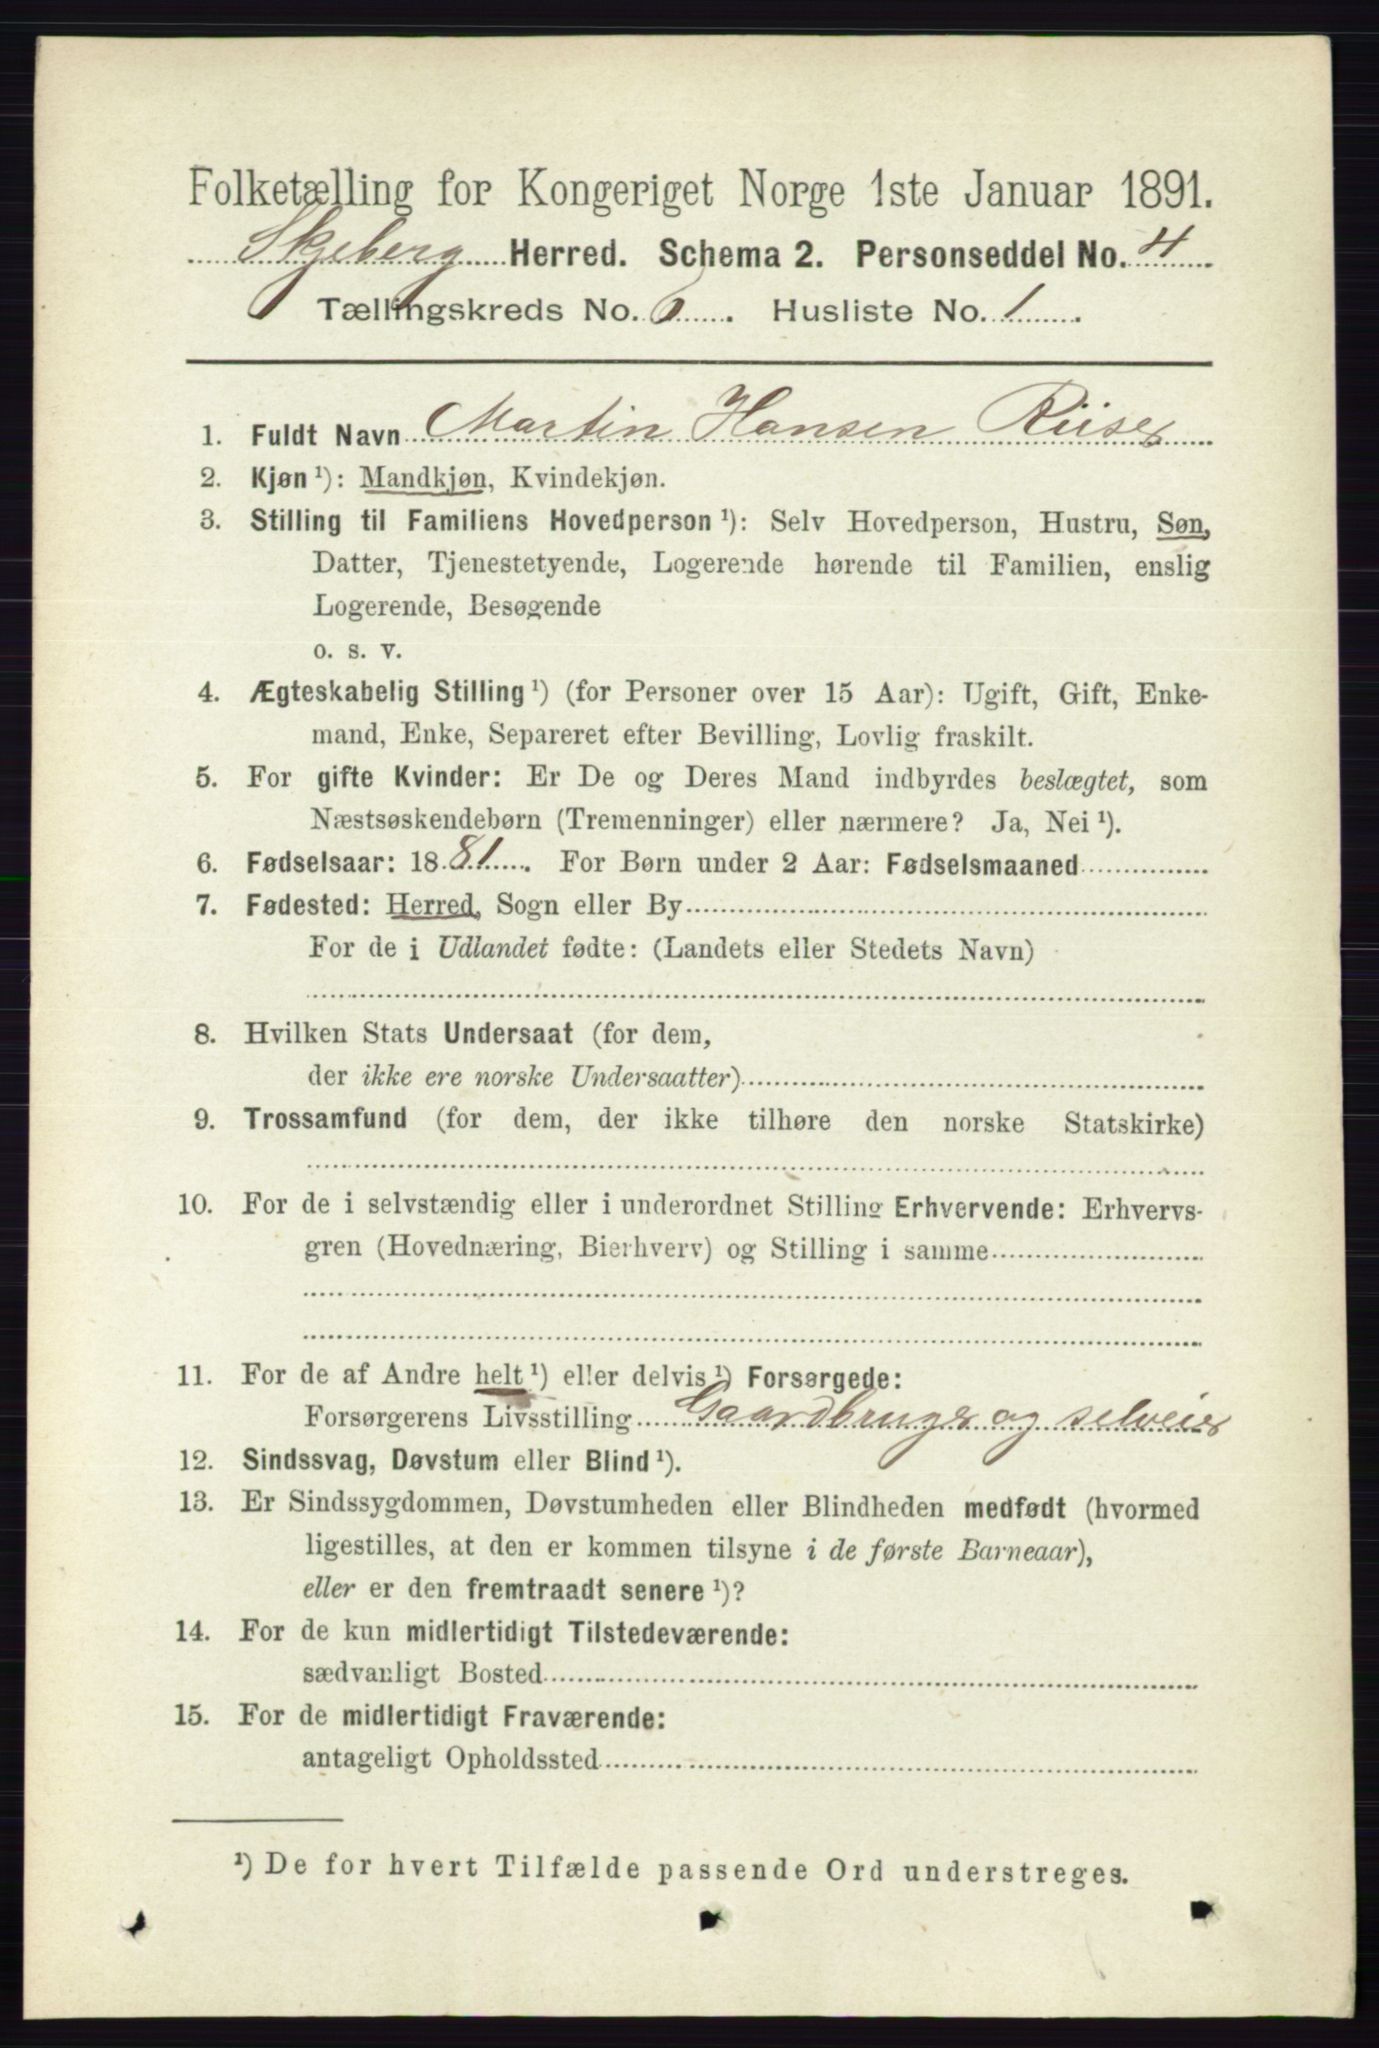 Folketælling for Kongeriget Norge 1ste Januar 1891.
Skjeberg Herred. Schema 2. Personseddel No. 4
Tællingskreds No. 6. Husliste No. 1.
1. Fuldt Navn Martin Hansen Riiser
2. Kjøn ¹): Mandkjøn, Kvindekjøn.
3. Stilling til Familiens Hovedperson ¹): Selv Hovedperson, Hustru, Søn,
Datter, Tjenestetyende, Logerende hørende til Familien, enslig
Logerende, Besøgende
o. s. v.
4. Ægteskabelig Stilling ¹) (for Personer over 15 Aar): Ugift, Gift, Enke-
mand, Enke, Separeret efter Bevilling, Lovlig fraskilt.
5. For gifte Kvinder: Er De og Deres Mand indbyrdes beslægtet, som
Næstsøskendebørn (Tremenninger) eller nærmere? Ja, Nei ¹).
6. Fødselsaar: 1881. For Børn under 2 Aar: Fødselsmaaned
7. Fødested: Herred, Sogn eller By
For de i Udlandet fødte: (Landets eller Stedets Navn)
8. Hvilken Stats Undersaat (for dem,
der ikke ere norske Undersaatter)
9. Trossamfund (for dem, der ikke tilhøre den norske Statskirke)
10. For de i selvstændig eller i underordnet Stilling Erhvervende: Erhvervs-
gren (Hovednæring, Bierhverv) og Stilling i samme
11. For de af Andre helt ¹) eller delvis ¹) Forsørgede:
Forsørgerens Livsstilling Gaardbruger og selveier
12. Sindssvag, Døvstum eller Blind ¹).
13. Er Sindssygdommen, Døvstumheden eller Blindheden medfødt (hvormed
ligestilles, at den er kommen tilsyne i de første Barneaar),
eller er den fremtraadt senere ¹)?
14. For de kun midlertidigt Tilstedeværende:
sædvanligt Bosted
15. For de midlertidigt Fraværende:
antageligt Opholdssted
¹) De for hvert Tilfælde passende Ord understreges.